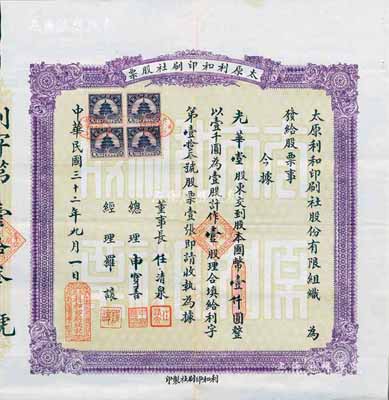 太原利和印刷社股票
太原利和印刷社股份有限組織 為
發給股票事
今據
光華堂股東交到股本國幣壹仟圓整
以壹千圓為壹股計作壹股理合填給利字
第壹拾叁號股票壹張即請收執為據
董事長 任清泉
總理 申寶善
經理 羅讓
中華民國三十二年九月一日
利字第壹拾叁號
利和印刷社製印